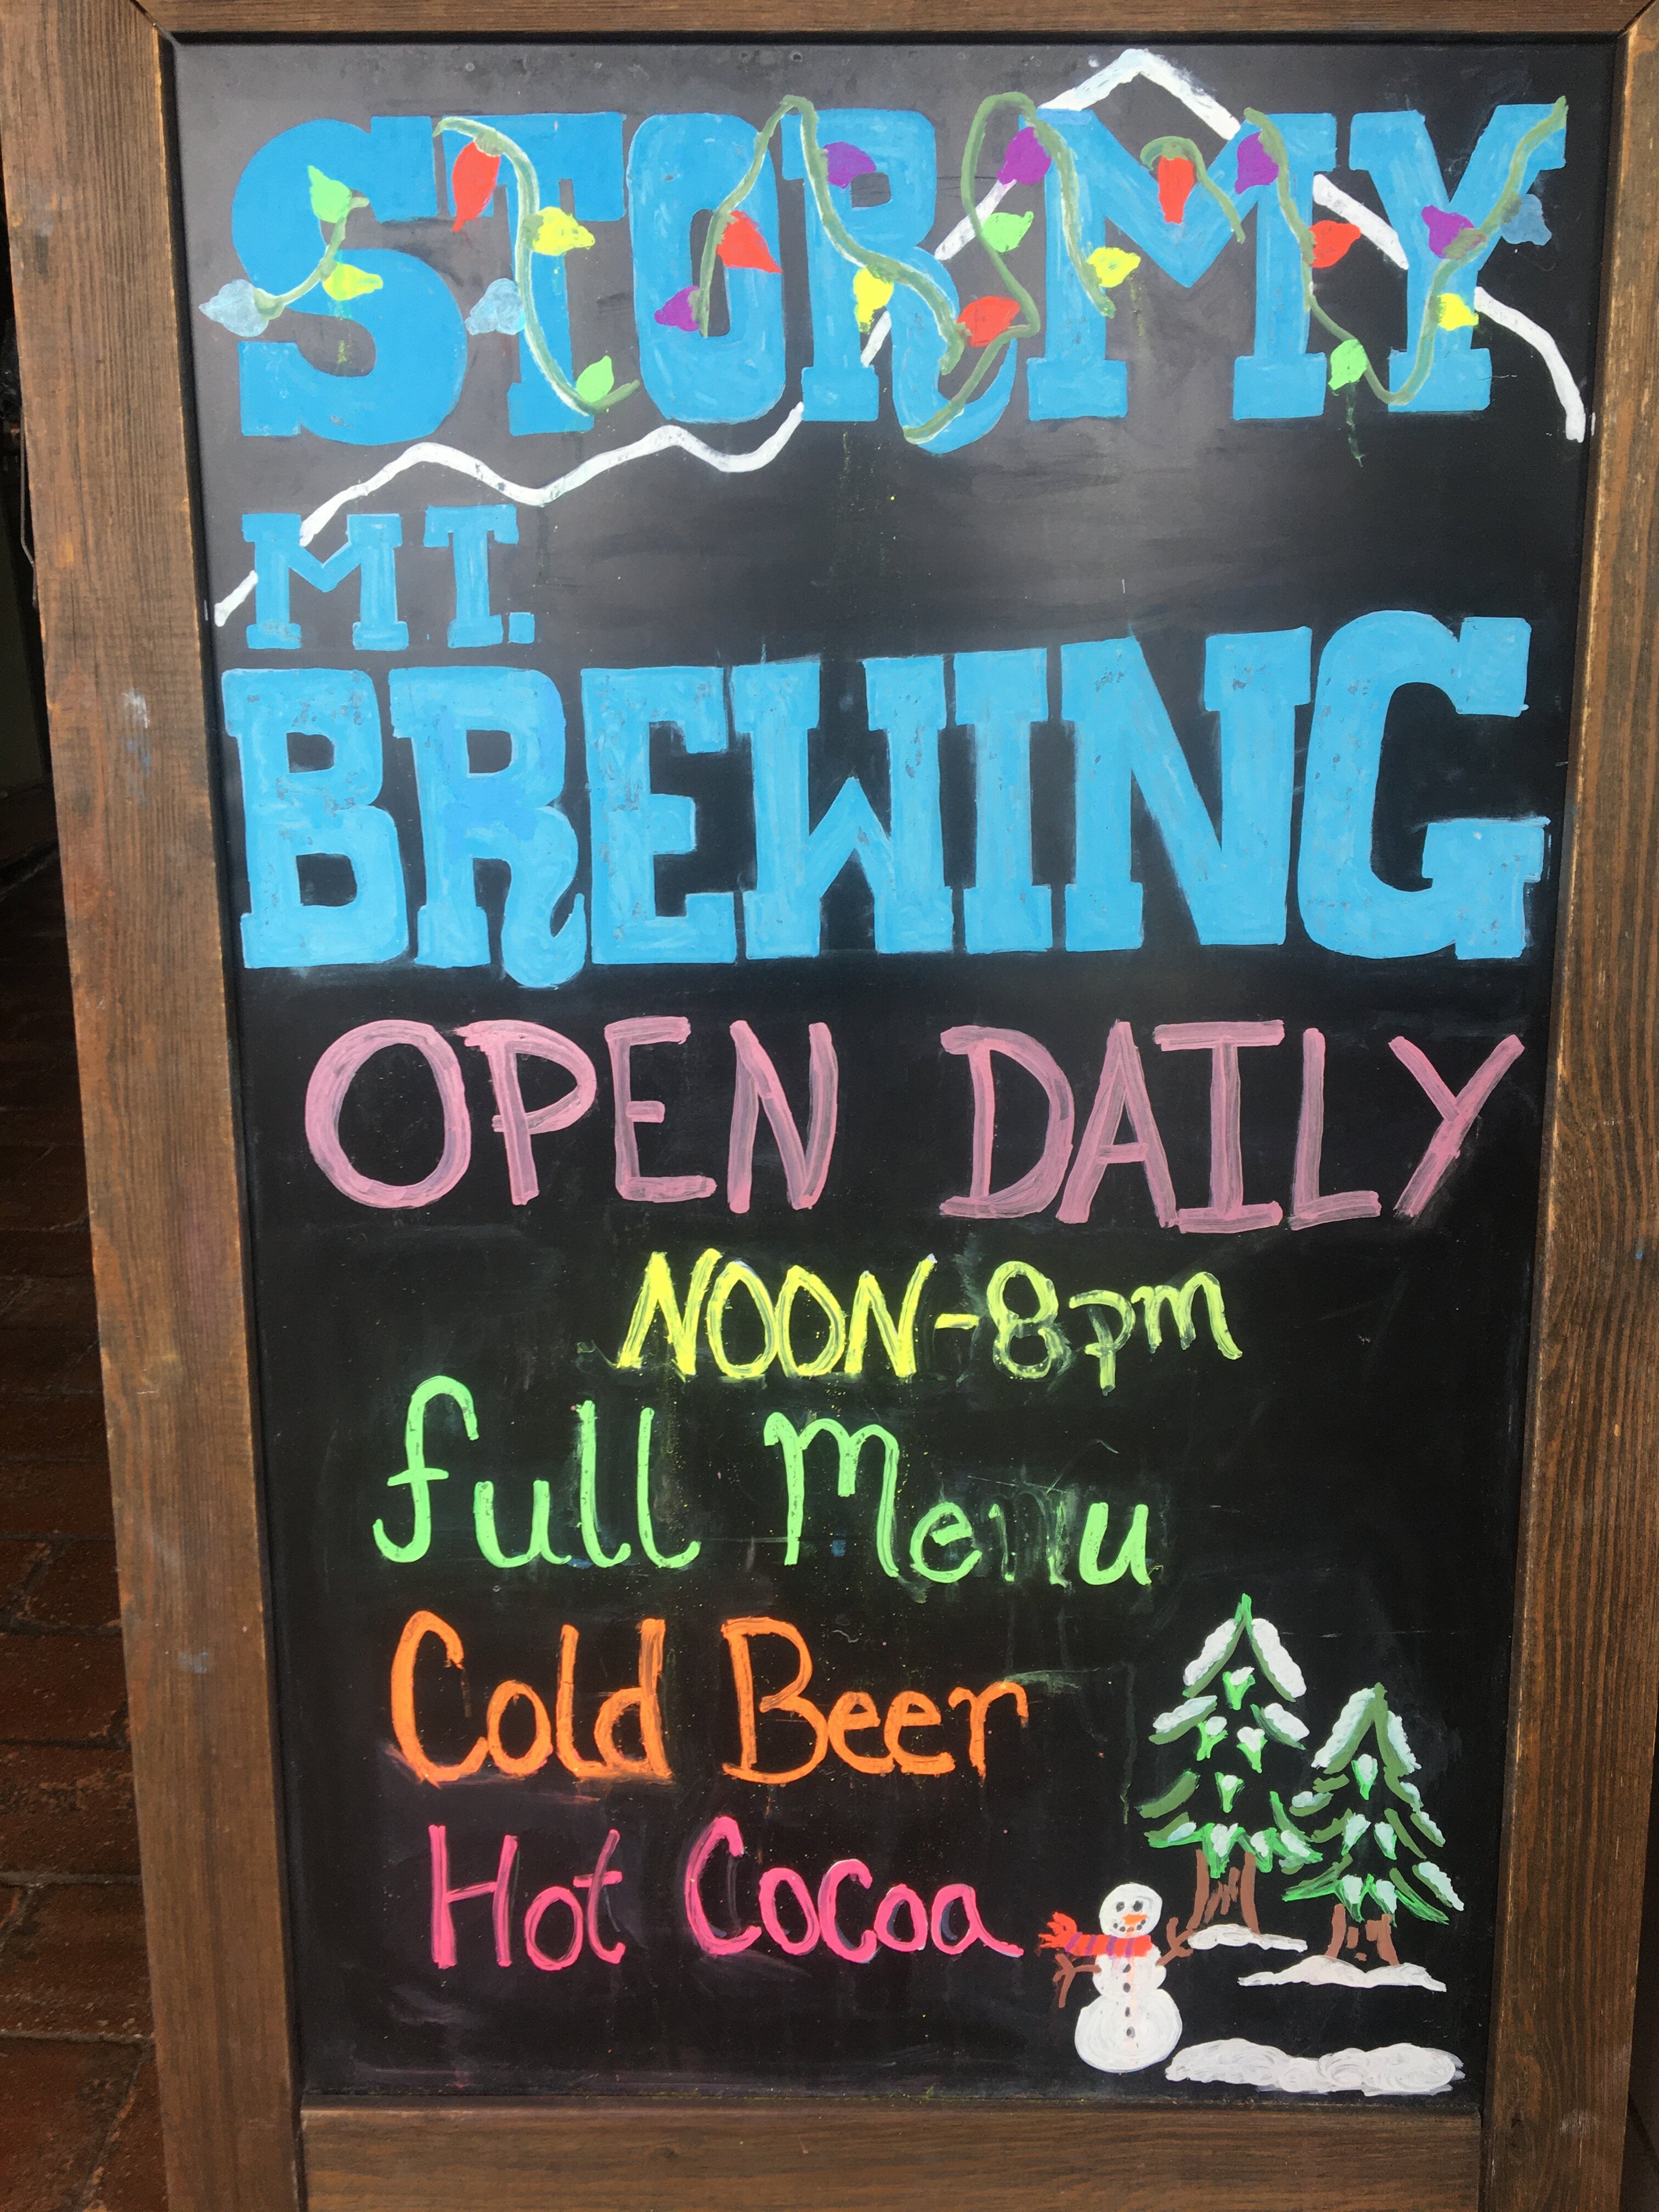 STORMY
MT.
BREWING
OPEN DAILY
NOON-8pm
full Menu
Cold Beer
Hot Cocoa